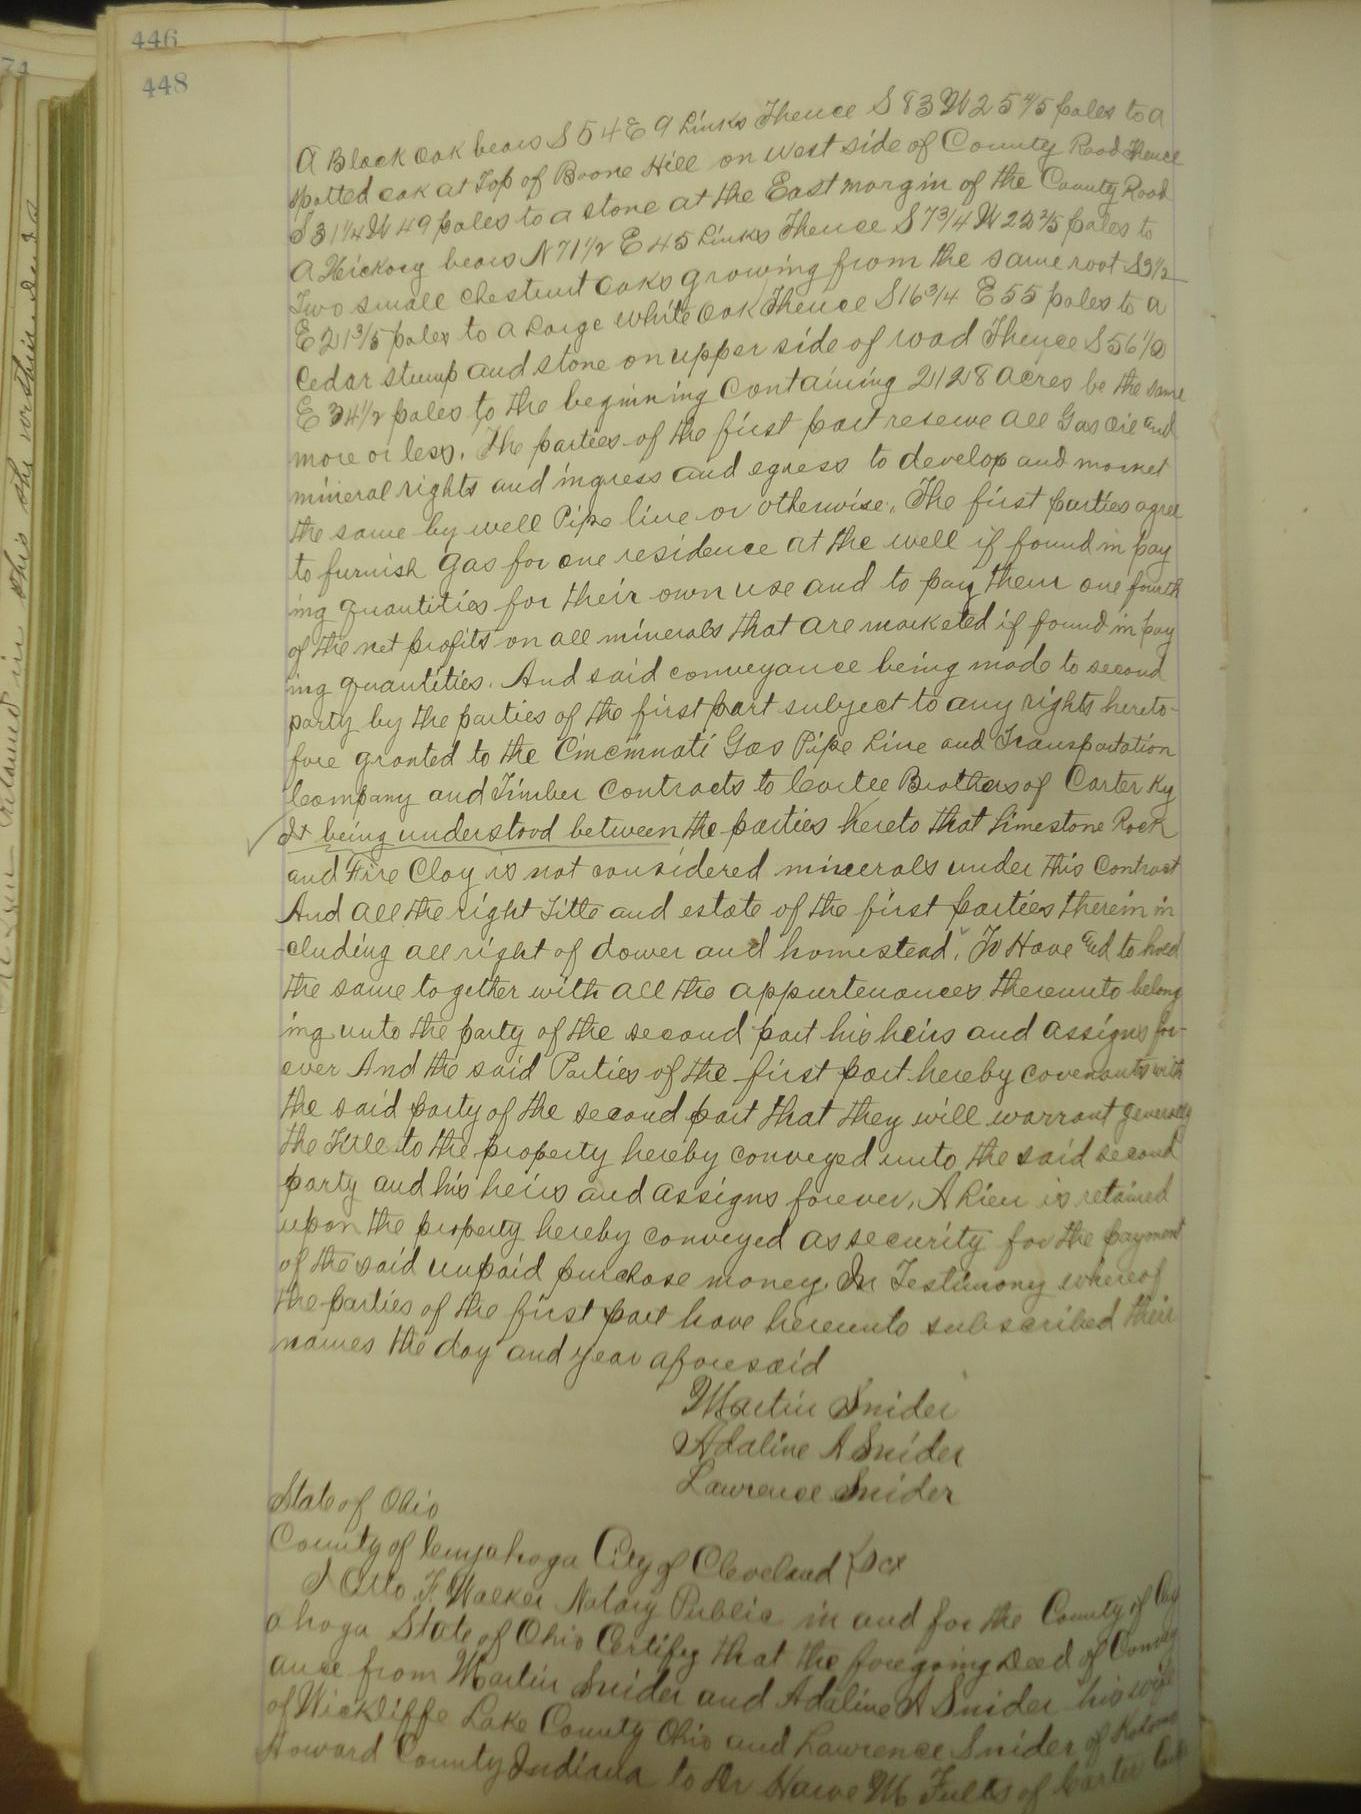 446
448
A Black oak bears S 54 E 9 Links Thence S 83 W 25 4/5 poles to a
spotted oak at Top of Boone Hill on west side of County Road Thence
S 31 1/4 W 49 poles to a stone at the East margin of the County Road
A Hickory bears N 71 1/2 E 45 Links Thence S 7 3/4 W 22 2/5 poles to
Two small chestnut oaks growing from the same root S 3 1/2
E 21 3/5 poles to a Large white oak Thence S 16 3/4 E 55 poles to a
Cedar stump and stone on upper side of road Thence S 56 1/2
E 34 1/2 poles to the beginning Containing 212 8 acres be the same
more or less. The parties of the first part reserve all Gas oil and
mineral rights and ingress and egress to develop and market
the same by well Pipe line or otherwise. The first parties agree
to furnish gas for one residence at the well if found in pay
ing quantities for their own use and to pay them one fourth
of the net profits on all minerals that are marketed if found in pay
ing quantities. And said conveyance being made to second
party by the parties of the first part subject to any rights hereto-
fore granted to the Cincinnati Gas Pipe Line and Transportation
Company and Timber Contracts to Brothers of Carter Ky
It being understood between the parties hereto that Limestone Rock
and Fire Clay is not considered minerals under this Contract
And all the right Title and estate of the first parties therein in
cluding all right of dower and homestead. To Have and to hold
the same together with all the appurtenances thereunto belong
ing unto the party of the second part his heirs and assigns for-
ever And the said Parties of the first part hereby covenants with
the said party of the second part that they will warrant generally
the Title to the property hereby conveyed unto the said second
party and his heirs and assigns forever. A Lien is retained
upon the property hereby conveyed as security for the payment
of the said unpaid purchase money. In Testimony whereof
the parties of the first part have hereunto subscribed their
names the day and year aforesaid
Martin Snider
Adaline A Snider
Lawrence Snider
State of Ohio
County of Cuyahoga City of Cleveland } Sct
I Otto F. Walker Notary Public in and for the County of Cuy
ahoga State of Ohio Certify that the foregoing Deed of Convey
ance from Martin Snider and Adaline A Snider his wife
of Wickliffe Lake County Ohio and Lawrence Snider of Kokomo
Howard County Indiana to Dr M Fults of Carter